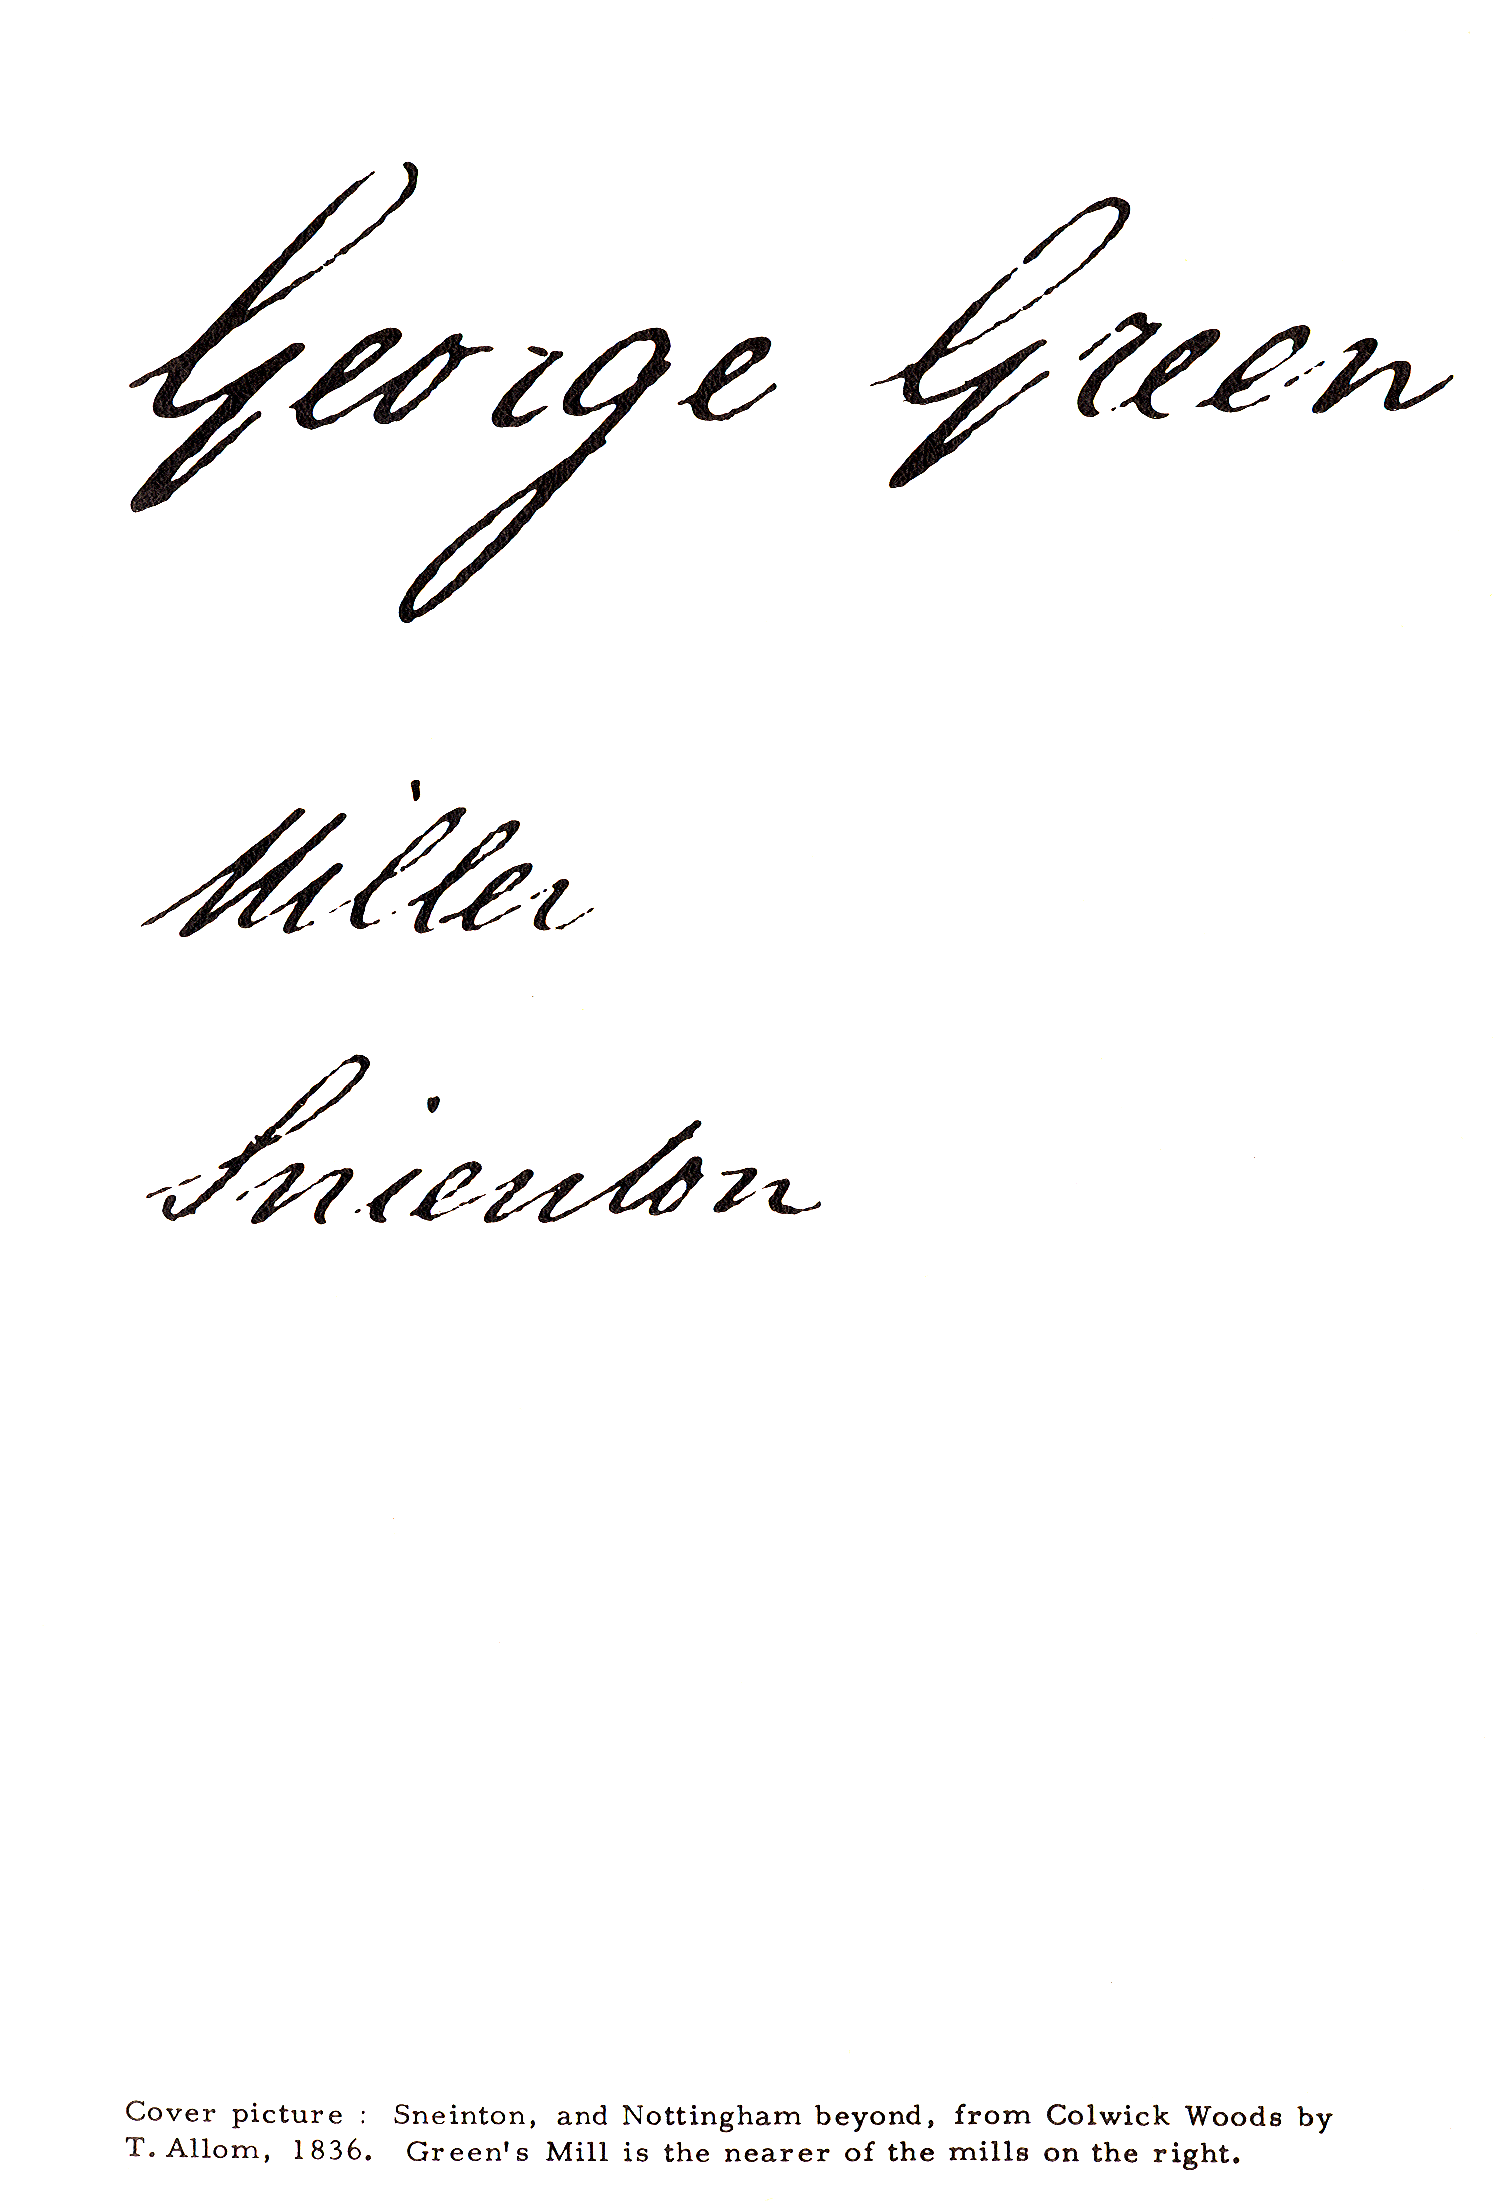 George Green
Miller
Snienton
Cover picture : Sneinton, and Nottingham beyond, from Colwick Woods by
T. Allom, 1836. Green's Mill is the nearer of the mills on the right.